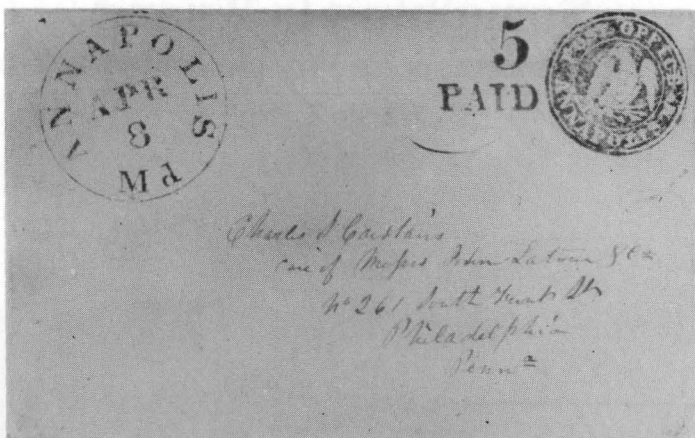 ANNAPOLIS
APR
8
Md
5
PAID
POST OFFICE
ANNAPOLIS
Charles
care of Messrs John Latour & Co
No 261 South Front St
Philadelphia
Penna